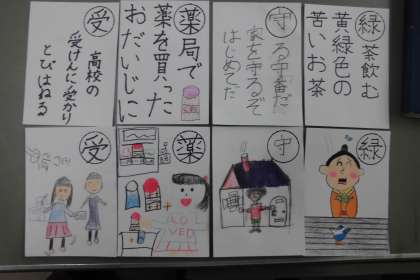 緑茶飲む
黄緑色の
苦いお茶
守る守番だ
家を守るぞ
はじめてだ
薬局で
薬を買った
おだいじに
受
高校の
受けんに受かり
とびはねる
緑
守
薬
受